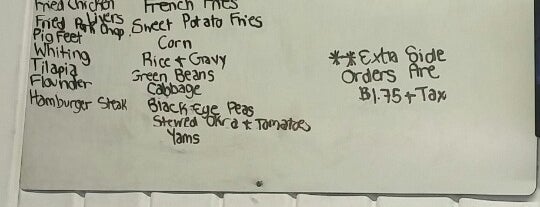 Fried Chicken
Livers
Fried Pork Chop
Pig Feet
Whiting
Tilapia
Flounder
Hamburger Steak
French Fries
Sweet Potato Fries
Corn
Rice + Gravy
Green Beans
Cabbage
Black-Eye Peas
Stewed Okra + Tomatoes
Yams
**Extra Side
Orders Are
$1.75 + Tax